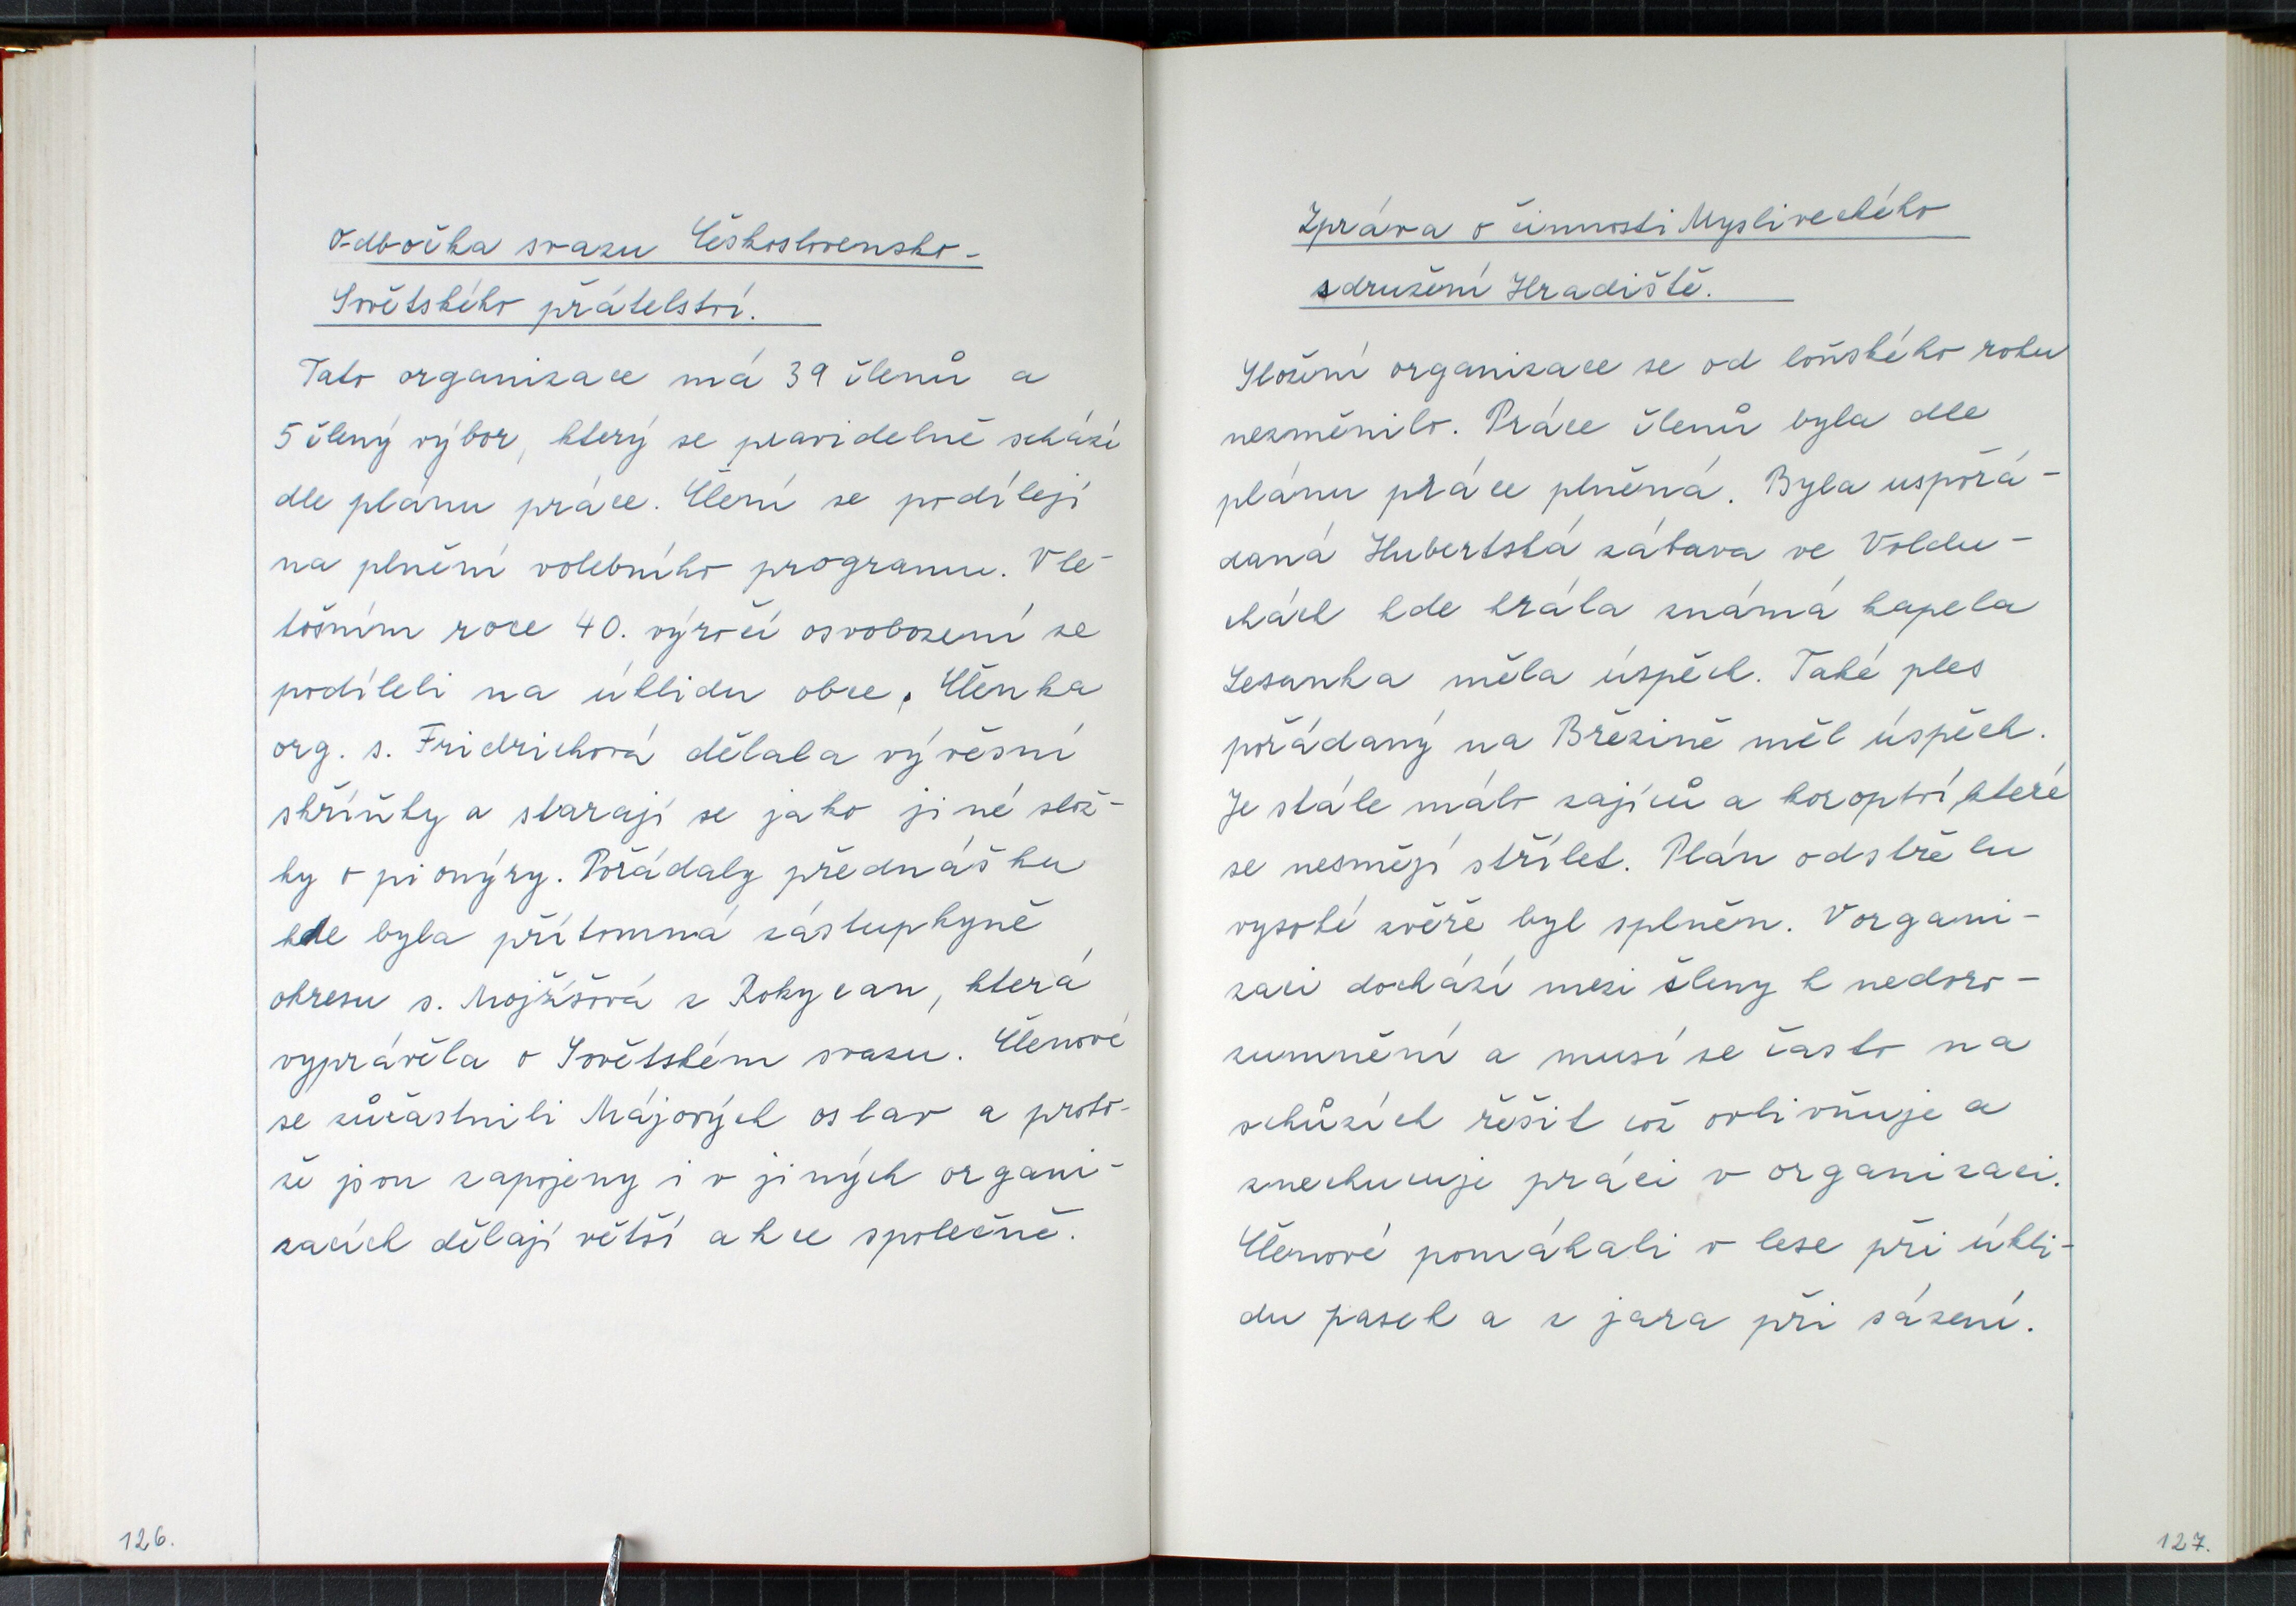 Odbočka svazu Československo-
Sovětského přátelství.
Tato organizace má 39 členů a
5 člený výbor, který se pravidelně schází
dle plánu práce. Členi se podílejí
na plnění volebního programu. V le-
tošním roce 40. výročí osvobození se
podíleli na úklidu obce. Členka
org. s. Fridrichová dělala vývěsní
skříňky a starají se jako jiné slož-
ky o pionýry. Pořádaly přednášku
kde byla přítomná zástupkyně
okresu s. Mojžíšová z Rokycan, která
vyprávěla o Sovětském svazu. Členové
se zůčastnili Májových oslav a proto-
že jsou zapojeny i v jiných organi-
zacích dělají větší akce společně.
126.
Zpráva o činnosti Mysliveckého
sdružení Hradiště.
Složení organizace se od loňského roku
nezměnilo. Práce členů byla dle
plánu práce plněná. Byla uspořá-
daná Hubertská zábava ve Voldu-
chách kde hrála známá kapela
Lesanka měla úspěch. Také ples
pořádaný na Březině měl úspěch.
Je stále málo zajíců a koroptví, které
se nesmějí střílet. Plán odstřelu
vysoké zvěře byl splněn. V organi-
zaci dochází mezi členy k nedoro-
zumnění a musí se často na
schůzích řěšit což ovlivňuje a
znechucuje práci v organizaci.
Členové pomáhali v lese při úkli-
du pasek a z jara při sázení.
127.